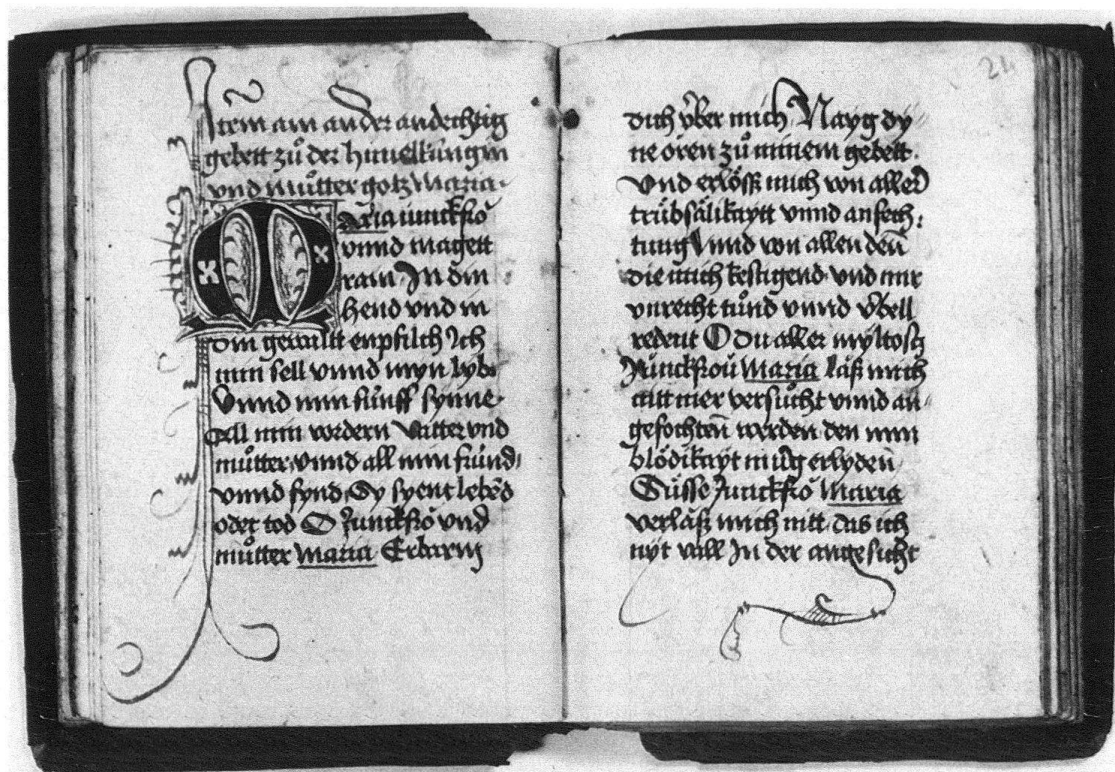 Item ain ander andechtig
gebett zů der himelkungin
vnd můtter gotz Maria.
Maria iunckfrŏ
vnnd magett
rain In din
hend vnd in
din gewallt enpfilch Ich
min sell vnnd myn lyb.
Vnnd min fünff synne.
All min vordern Vatter vnd
můtter. vnnd all min fründ.
vnnd fynd. Sy syent lebēd
oder tod O Junckfrŏ vnd
můtter Maria Erbarm
24
dich vͤber mich Nayg dy
ne oren zů minem gebett.
Vnd erlöss mich von aller
trübsälikaytt vnnd anfech:
tung Vnnd von allen den
die mich kestigend. vnd mir
vnrecht tůnd vnnd vͤbell
redent O du aller myltosty
Junckfroů Maria läss mich
nitt mer versůcht vnnd an
gefochten werden den min
blödikayt müg erlyden
Süsse Junckfrŏ Maria
verläss mich nitt. das ich
nyt vall In der angesicht